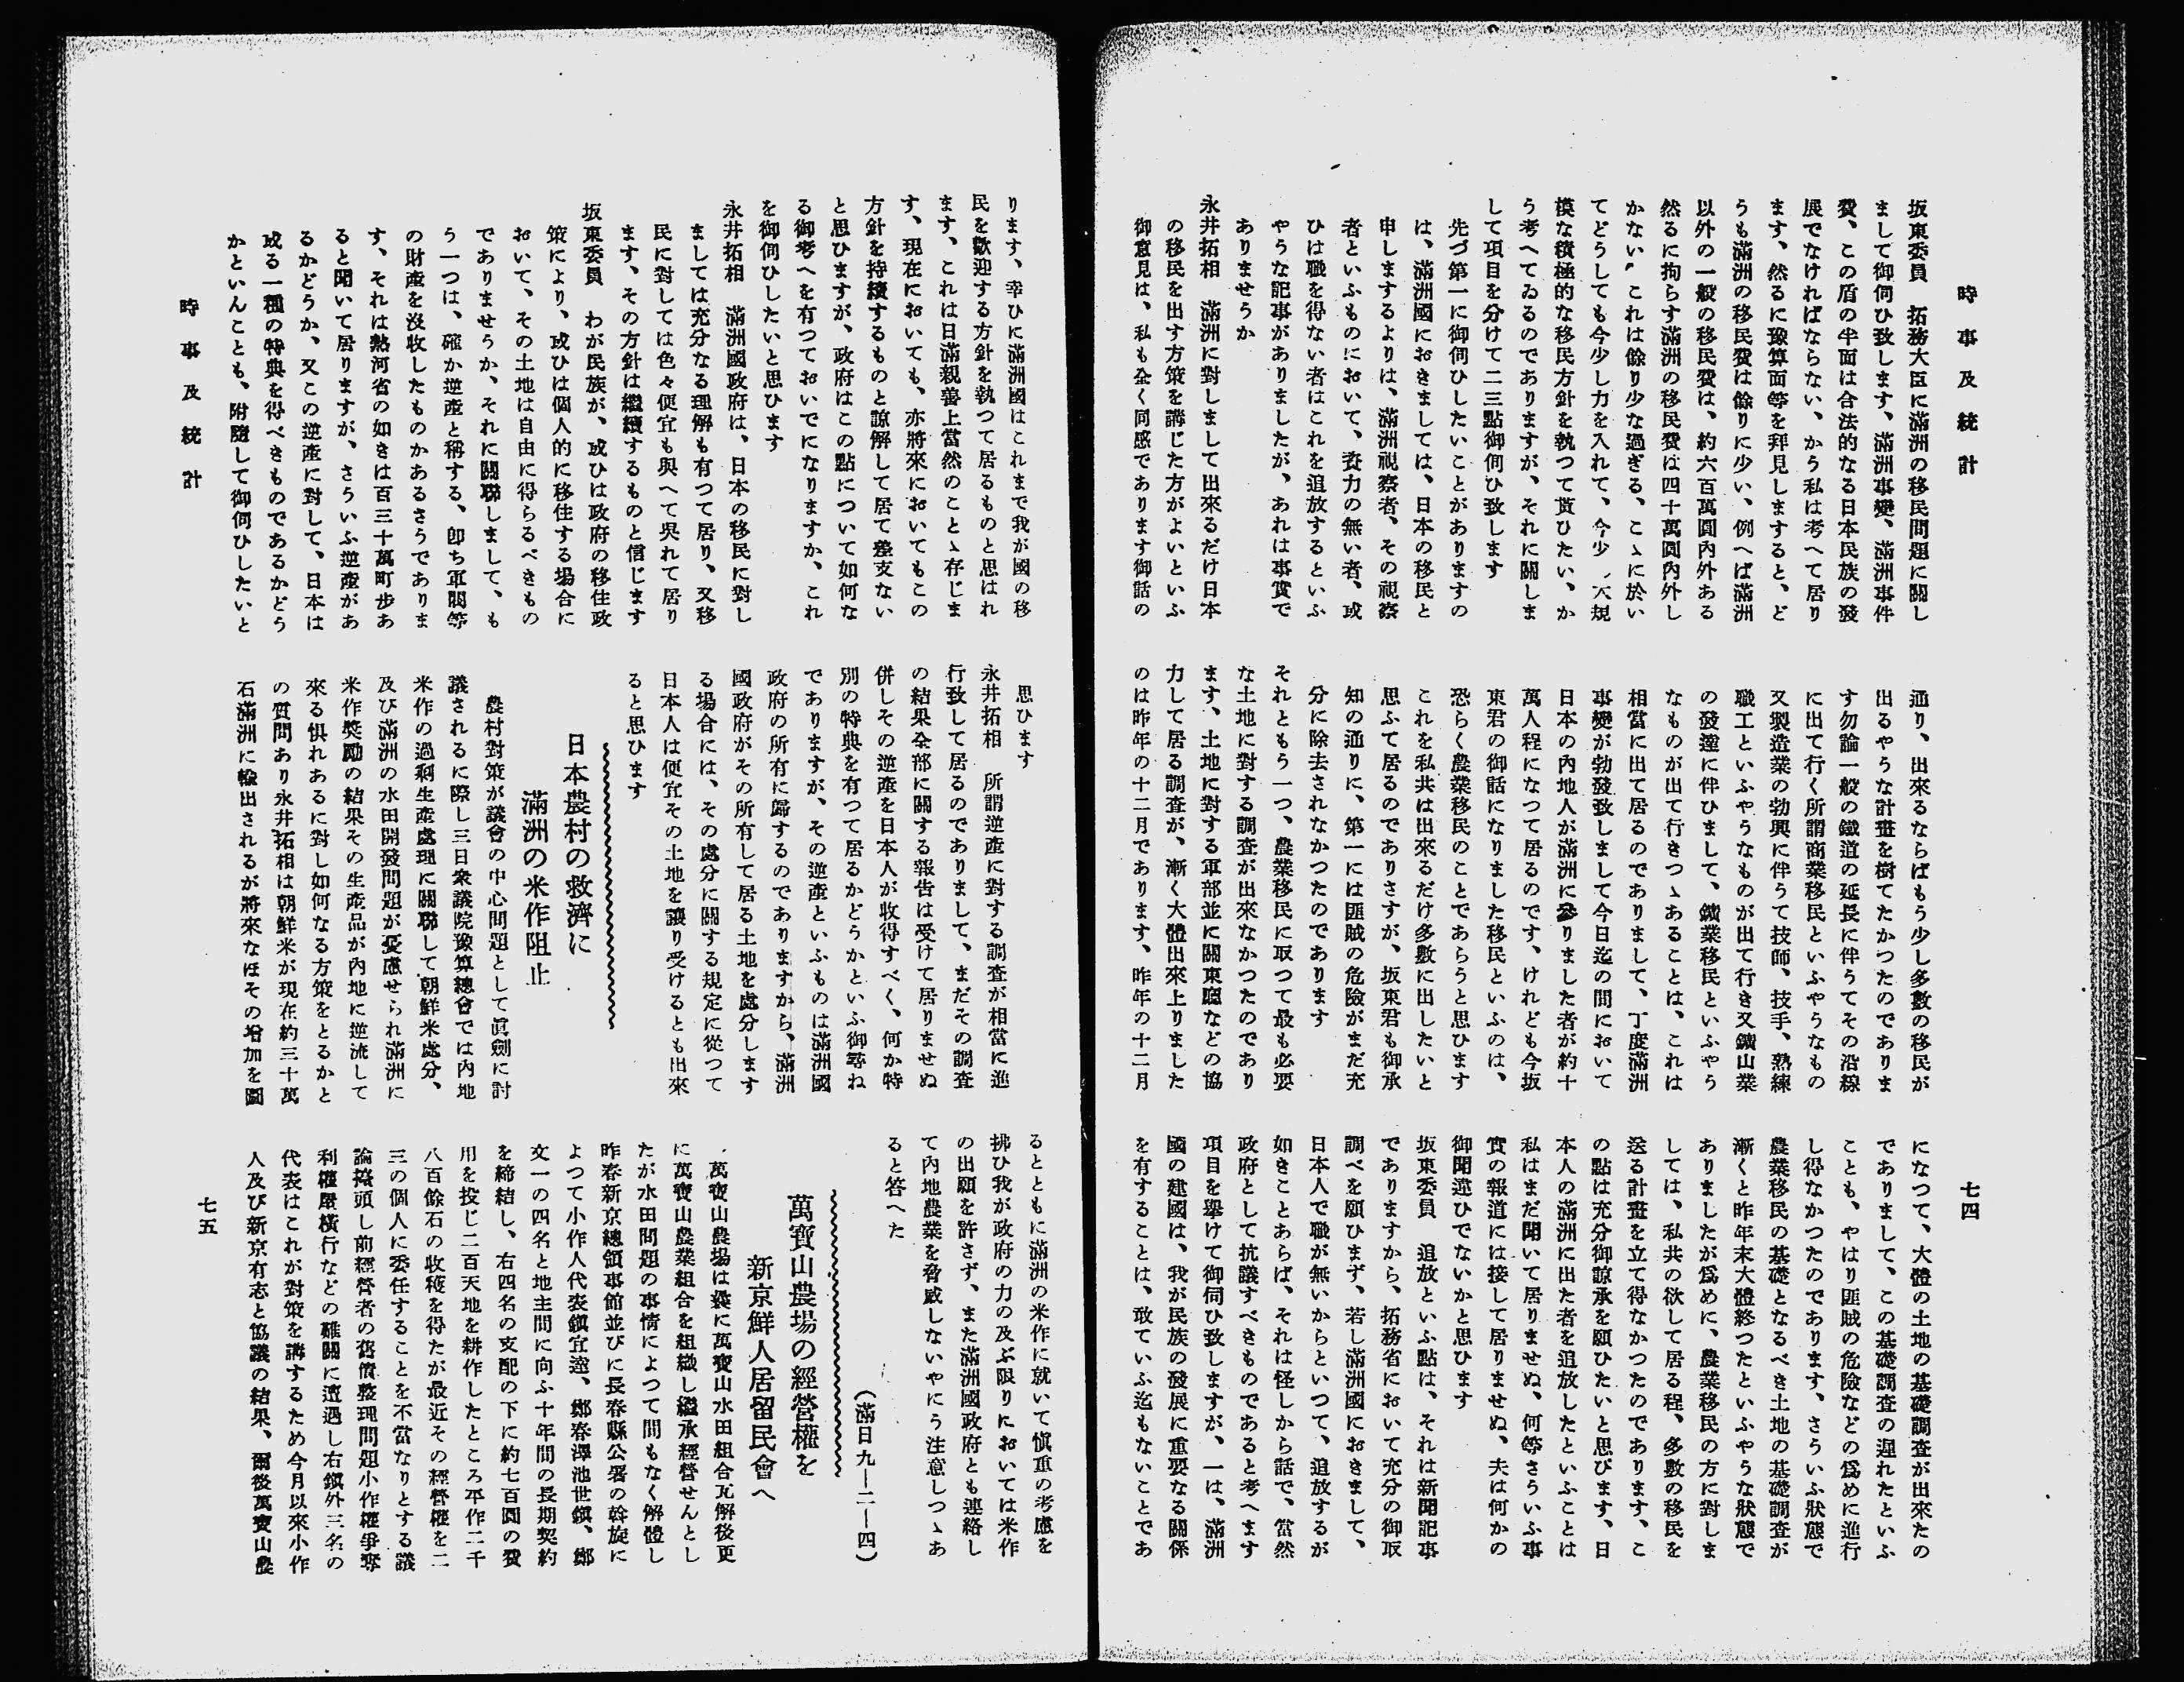 時事及統計
七四
坂東委員　拓務大臣に滿洲の移民問題に關し
まして御伺ひ致します、滿洲事變、滿洲事件
費、この盾の半面は合法的なる日本民族の發
展でなければならない、かう私は考へて居り
ます、然るに豫算面等を拜見しますると、ど
うも滿洲の移民費は餘りに少い、例へば滿洲
以外の一般の移民費は、約六百萬圓內外ある
然るに拘らす滿洲の移民費は四十萬圓內外し
かない、これは餘り少な過ぎる、こゝに於い
てどうしても今少し力を入れて、今少　大規
模な積極的な移民方針を執つて貰ひたい、か
う考へてゐるのでありますが、それに關しま
して項目を分けて二三點御伺ひ致します
先づ第一に御伺ひしたいことがありますの
は、滿洲國におきましては、日本の移民と
申しまするよりは、滿洲視察者、その視察
者といふものにおいて、資力の無い者、或
ひは職を得ない者はこれを追放するといふ
やうな記事がありましたが、あれは事實で
ありませうか
永井拓相　滿洲に對しまして出來るだけ日本
の移民を出す方策を講じた方がよいといふ
御意見は、私も全く同感であります御話の
通り、出來るならばもう少し多數の移民が
出るやうな計畫を樹てたかつたのでありま
す勿論一般の鐵道の延長に伴うてその沿線
に出て行く所謂商業移民といふやうなもの
又製造業の勃興に伴うて技師、技手、熟練
職工といふやうなものが出て行き又鑛山業
の發達に伴ひまして、鑛業移民といふやう
なものが出て行きつゝあることは、これは
相當に出て居るのでありまして、丁度滿洲
事變が勃發致しまして今日迄の間において
日本の內地人が滿洲に參りました者が約十
萬人程になつて居るのです、けれども今坂
東君の御話になりました移民といふのは、
恐らく農業移民のことであらうと思ひます
これを私共は出來るだけ多數に出したいと
思ふて居るのでありさすが、坂東君も御承
知の通りに、第一には匪賊の危險がまだ充
分に除去されなかつたのであります
それともう一つ、農業移民に取つて最も必要
な土地に對する調査が出來なかつたのであり
ます、土地に對する軍部並に關東廳などの協
力して居る調査が、漸く大體出來上りました
のは昨年の十二月であります、昨年の十二月
になつて、大體の土地の基礎調査が出來たの
でありまして、この基礎調査の遲れたといふ
ことも、やはり匪賊の危險などの爲めに進行
し得なかつたのであります、さういふ狀態で
農業移民の基礎となるべき土地の基礎調査が
漸くと昨年末大體終つたといふやうな狀態で
ありましたが爲めに、農業移民の方に對しま
しては、私共の欲して居る程、多數の移民を
送る計畫を立て得なかつたのであります、こ
の點は充分御諒承を願ひたいと思びます、日
本人の滿洲に出た者を追放したといふことは
私はまだ聞いて居りませぬ、何等さういふ事
實の報道には接して居りませぬ、夫は何かの
御聞違ひでないかと思ひます
坂東委員　追放といふ點は、それは新聞記事
でありますから、拓務省において充分の御取
調べを願ひまず、若し滿洲國におきまして、
日本人で職が無いからといつて、追放するが
如きことあらば、それは怪しから話で、當然
政府として抗議すべきものであると考へます
項目を擧けて御伺ひ致しますが、一は、滿洲
國の建國は、我が民族の發展に重要なる關係
を有することは、敢ていふ迄もないことであ
ります、幸ひに滿洲國はこれまで我が國の移
民を歡迎する方針を執つて居るものと思はれ
ます、これは日滿親善上當然のことゝ存じま
す、現在においても、亦將來においてもこの
方針を持續するものと諒解して居て差支ない
と思ひますが、政府はこの點について如何な
る御考へを有つておいでになりますか、これ
を御伺ひしたいと思ひます
永井拓相　滿洲國政府は、日本の移民に對し
ましては充分なる理解も有つて居り、又移
民に對しては色々便宜も與へて吳れて居り
ます、その方針は繼續するものと信じます
坂東委員　わが民族が、或ひは政府の移住政
策により、或ひは個人的に移住する場合に
おいて、その土地は自由に得らるべきもの
でありませうか、それに關聯しまして、も
う一つは、確か逆產と稱する、卽ち軍閥等
の財產を沒收したものかあるさうでありま
す、それは熱河省の如きは百三十萬町步あ
ると聞いて居りますが、さういふ逆產があ
るかどうか、又この逆產に對して、日本は
或る一種の特典を得べきものであるかどう
かといんことも、附隨して御伺ひしたいと
思ひます
永井拓相　所謂逆產に對する調査が相當に進
行致して居るのでありまして、まだその調査
の結果全部に關する報告は受けて居りませぬ
併しその逆產を日本人が收得すべく、何か特
別の特典を有つて居るかどうかといふ御尋ね
でありますが、その逆產といふものは滿洲國
政府の所有に歸するのでありますから、滿洲
國政府がその所有して居る土地を處分します
る場合には、その處分に關する規定に從つて
日本人は便宜その土地を讓り受けるとも出來
ると思ひます
日本農村の救濟に
滿洲の米作阻止
農村對策が議會の中心問題として眞劍に討
議されるに際し三日衆議院豫算總會では內地
米作の過剩生產處理に關聯して朝鮮米處分、
及び滿洲の水田開發問題が憂慮せられ滿洲に
米作獎勵の結果その生產品が內地に逆流して
來る惧れあるに對し如何なる方策をとるかと
の質問あり永井拓相は朝鮮米が現在約三十萬
石滿洲に輸出されるが將來なほその增加を圖
るとともに滿洲の米作に就いて愼重の考慮を
拂ひ我が政府の力の及ぶ限りにおいては米作
の出願を許さず、また滿洲國政府とも連絡し
て內地農業を脅威しないやにう注意しつゝあ
ると答へた
（滿日九—二—四）
萬寶山農場の經營權を
新京鮮人居留民會へ
萬寶山農場は曩に萬寶山水田組合瓦解後更
に萬寶山農業組合を組織し繼承經營せんとし
たが水田問題の事情によつて間もなく解體し
昨春新京總領事館並びに長春縣公署の斡旋に
よつて小作人代表鎭宜逵、鄭春澤池世鎭、鄭
文一の四名と地主間に向ふ十年間の長期契約
を締結し、右四名の支配の下に約七百圓の費
用を投じ二百天地を耕作したところ平作二千
八百餘石の收穫を得たが最近その經營權を二
三の個人に委任することを不當なりとする議
論擡頭し前經營者の舊債整理問題小作權爭奪
利權屋橫行などの難關に遭遇し右鎭外三名の
代表はこれが對策を講するため今月以來小作
人及び新京有志と協議の結果、爾後萬寶山農
時事及統計
七五